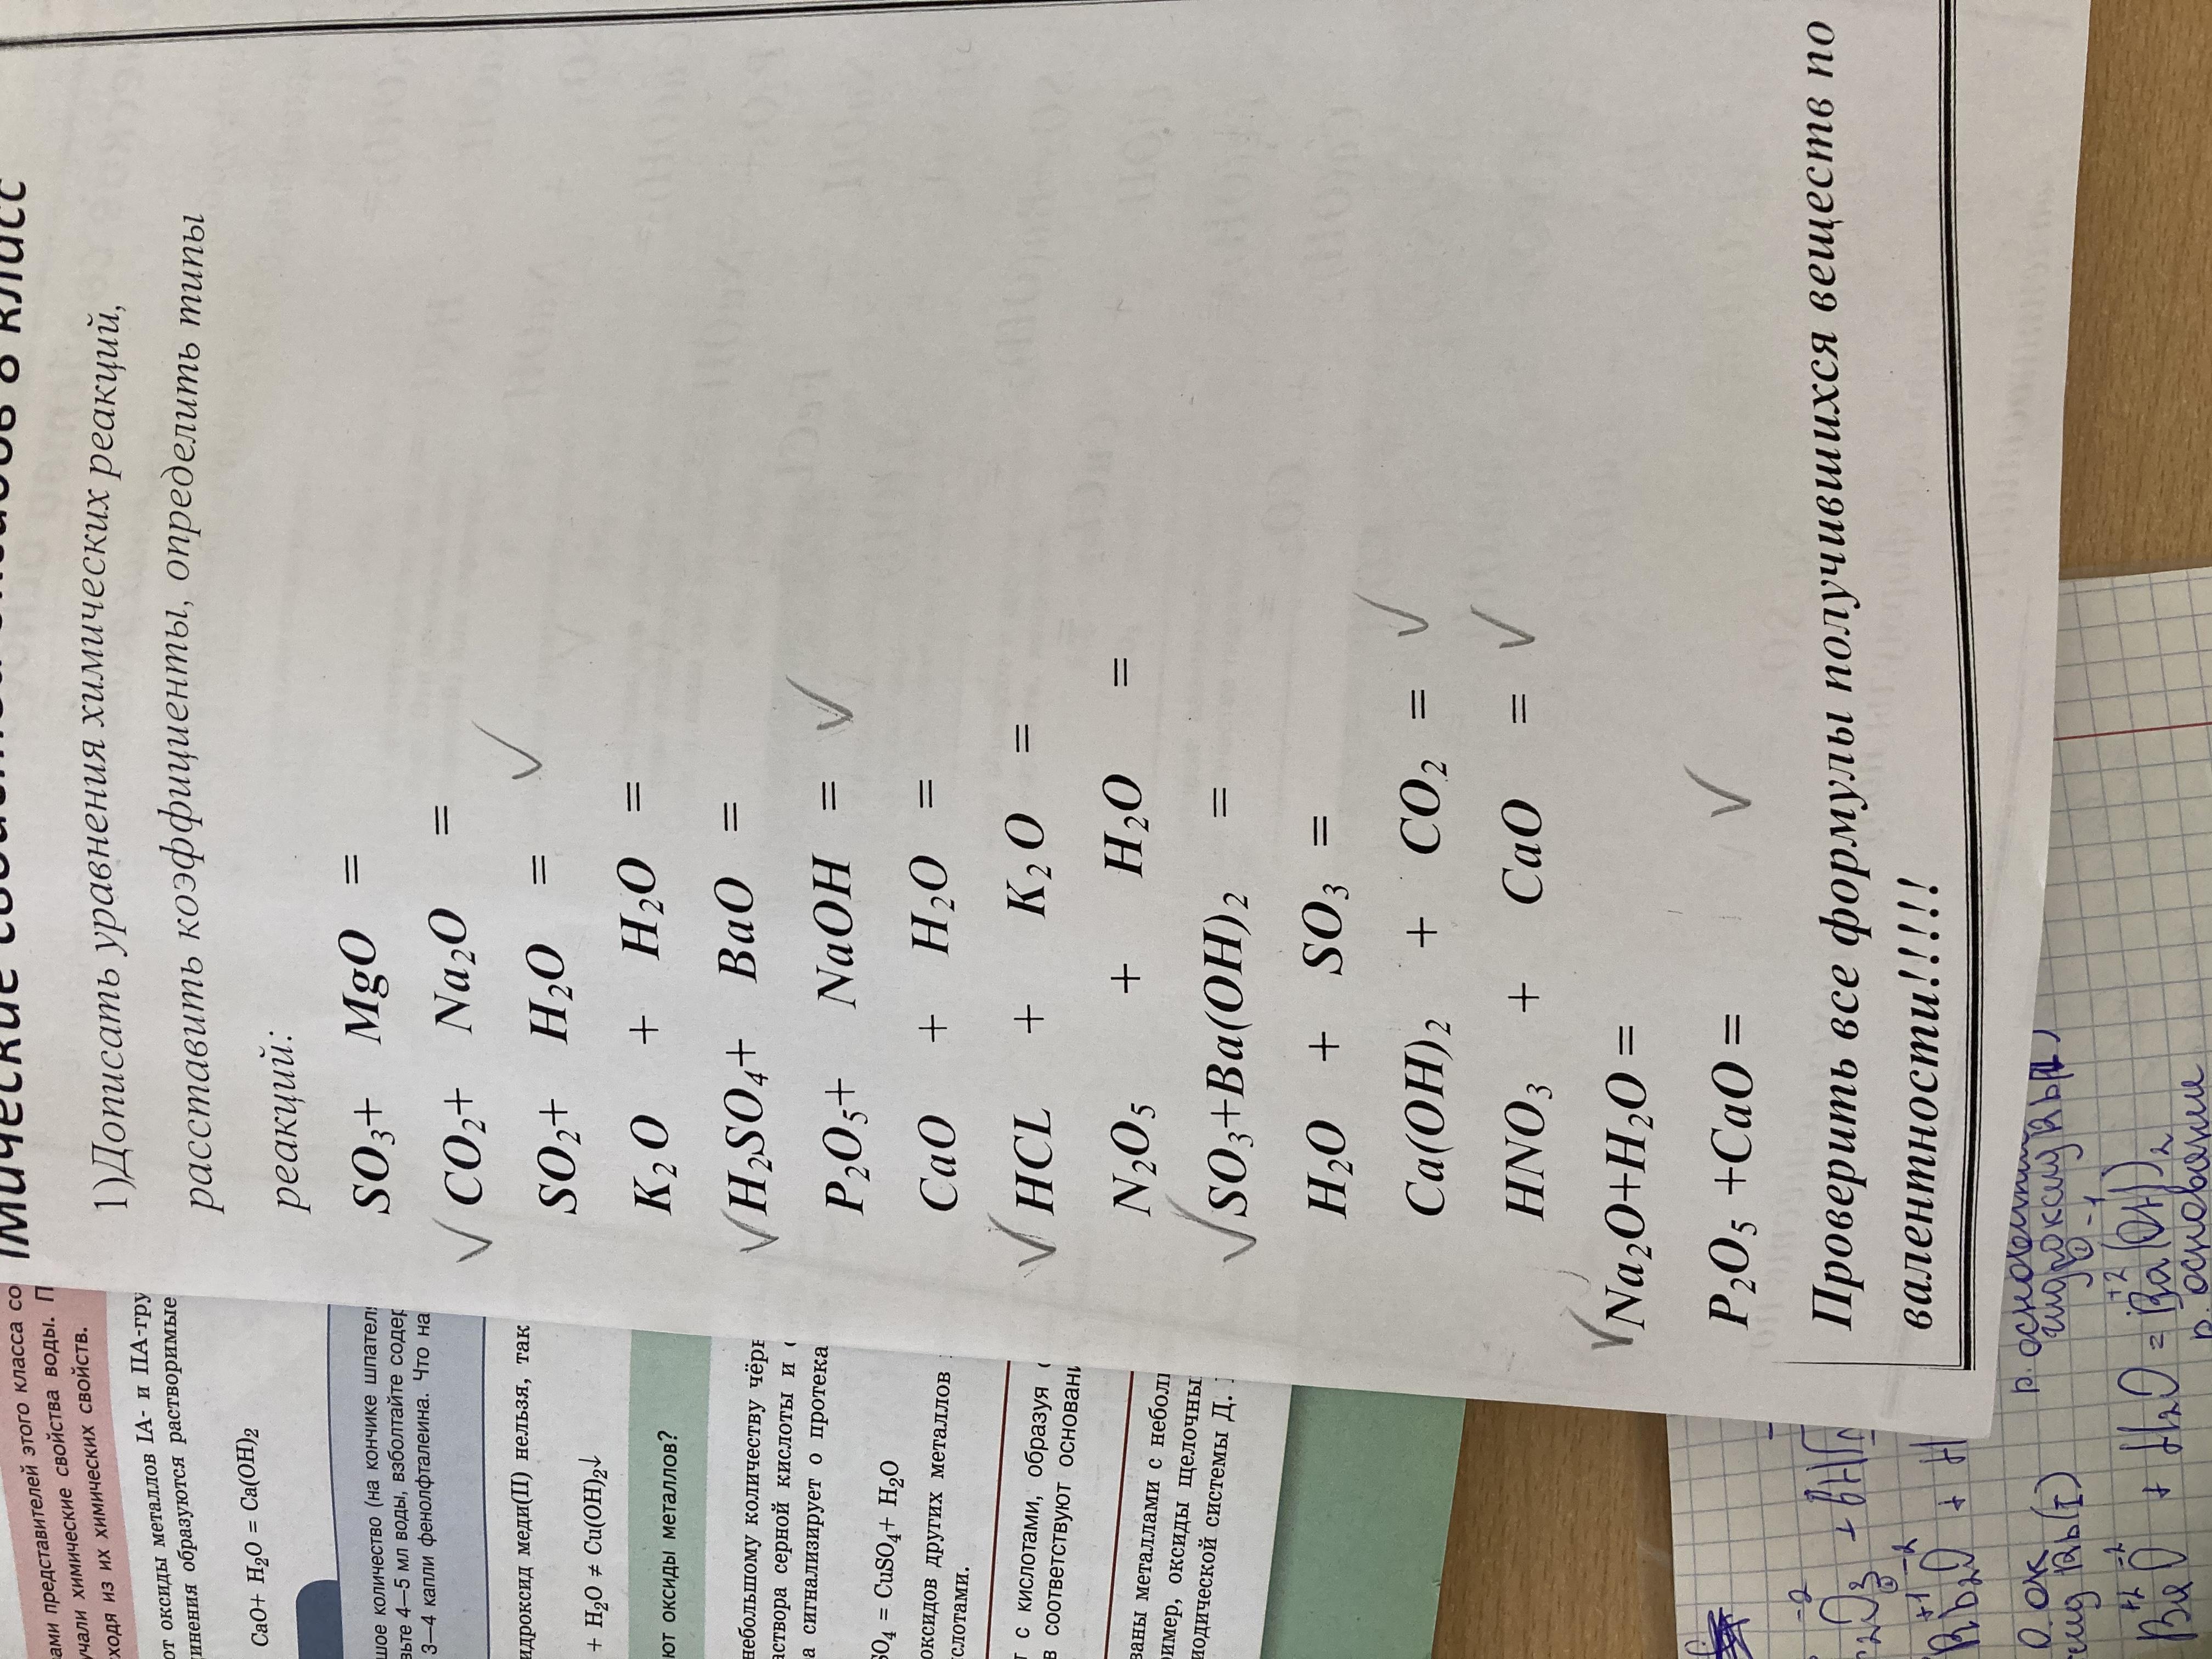 1)Дописать уравнения химических реакций,
расставить коэффициенты, определить типы
реакций:
SO₃+ MgO =
CO₂+ Na₂O =
SO₂+ H₂O =
K₂O + H₂O =
H₂SO₄+ BaO =
P₂O₅+ NaOH =
CaO + H₂O =
HCL + K₂O =
N₂O₅ + H₂O =
SO₃+Ba(OH)₂ =
H₂O + SO₃ =
Ca(OH)₂ + CO₂ =
HNO₃ + CaO =
Na₂O+H₂O =
P₂O₅ +CaO =
Проверить все формулы получившихся веществ по
валентности!!!!!!
представителей этого класса
химические свойства воды. П
ходя из их химических свойств.
оксиды металлов IA- и IIA-гру
образуются растворимые
CaO+ H₂O = Ca(OH)₂
количество (на кончике шпателя
4—5 мл воды, взболтайте содер
3—4 капли фенолфталеина. Что на
меди(II) нельзя, так
+ H₂O ≠ Cu(OH)₂↓
оксиды металлов?
небольшому количеству
серной кислоты и
сигнализирует о
SO₄ = CuSO₄+ H₂O
оксидов других металлов
с кислотами, образуя
в соответствуют
металлами с
оксиды щелочны
системы Д.
+ H₂O = Ba(OH)₂
р. основание